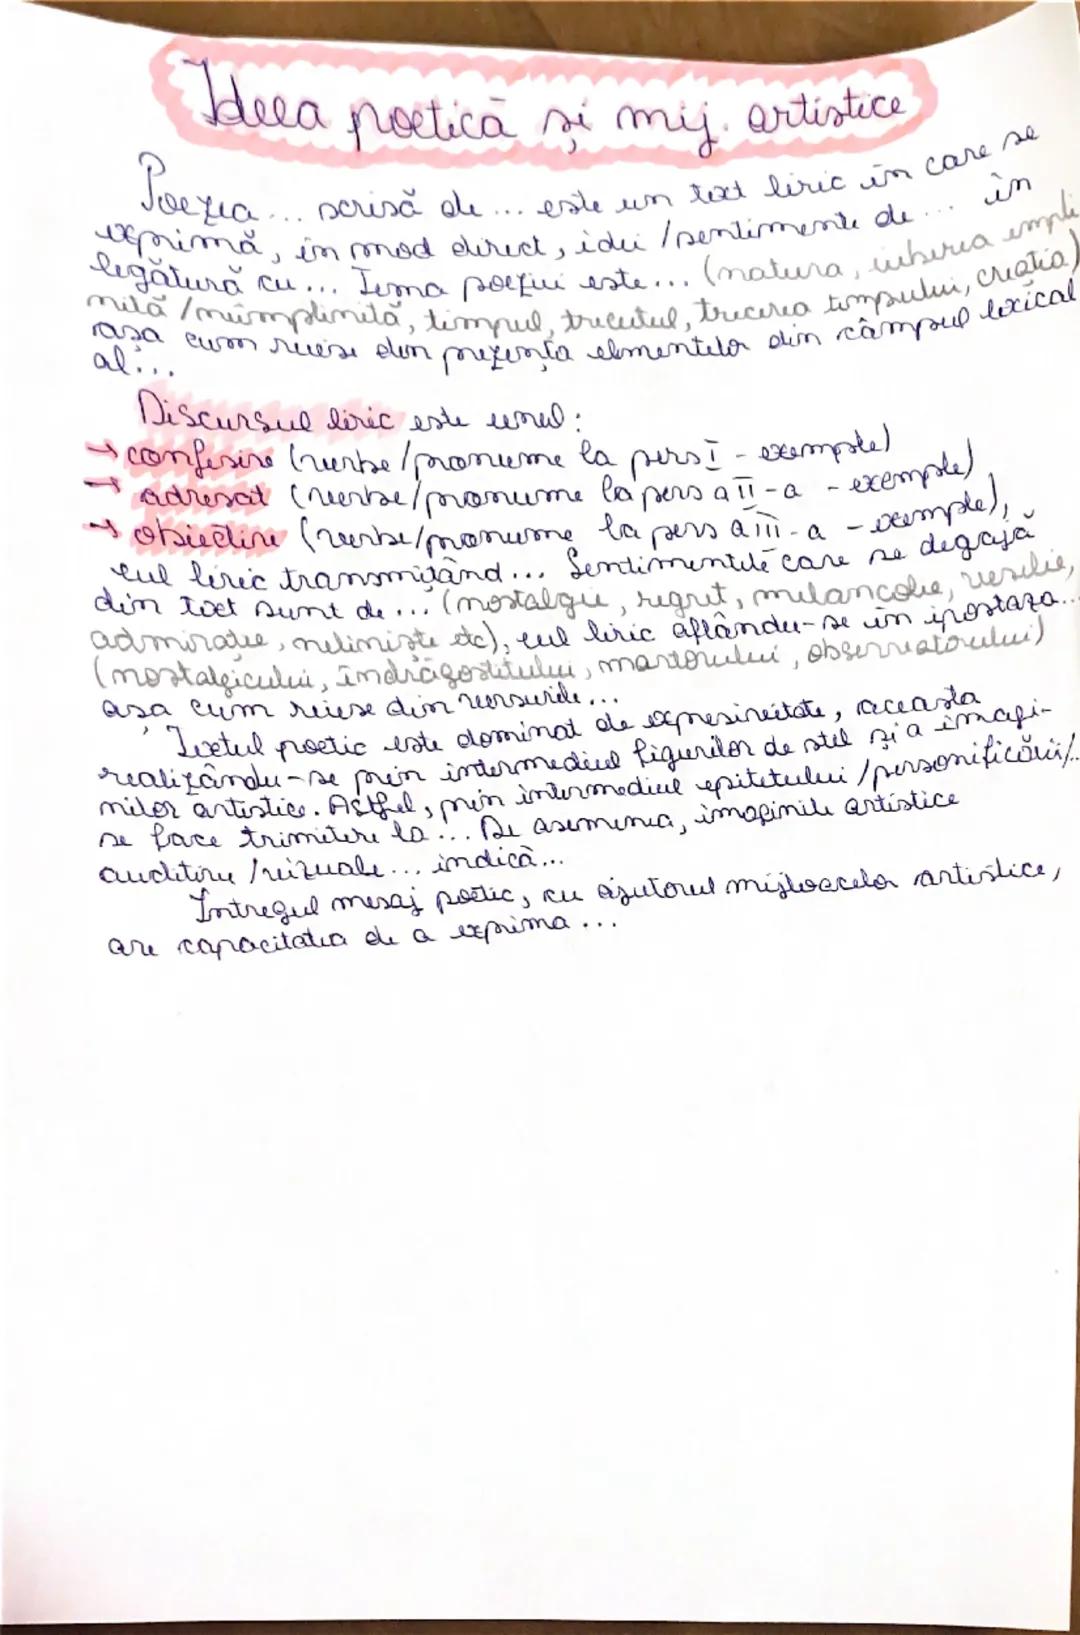 Ideea poetică și mij. artistice
Poezia... scrisă de ... este un text liric în care se
exprimă, în mod direct, idei /sentimente de ... în
legătură cu ... Tema poeziei este... (natura, iubirea împli-
nită /neîmplinită, timpul, trecutul, trecerea timpului, creația)
așa cum reiese din prezența elementelor din câmpul lexical
al...
Discursul liric este unul:
→ confesiv (verbe/pronume la pers I - exemple)
→ adresat (verbe/pronume la pers a II-a - exemple)
→ obiectiv (verbe/pronume la pers a III-a - exemple),
eul liric transmițând... Sentimentele care se degajă
din text sunt de ... (nostalgie, regret, melancolie, veselie,
admirație, neliniște etc), eul liric aflându-se în ipostaza...
(nostalgicului, îndrăgostitului, martorului, observatorului)
așa cum reiese din versurile...
Textul poetic este dominat de expresivitate, aceasta
realizându-se prin intermediul figurilor de stil și a imagi-
nilor artistice. Astfel, prin intermediul epitetului /personificării/..
se face trimitere la ... De asemenea, imaginile artistice
auditive /vizuale... indică...
Întregul mesaj poetic, cu ajutorul mijloacelor artistice,
are capacitatea de a exprima ...